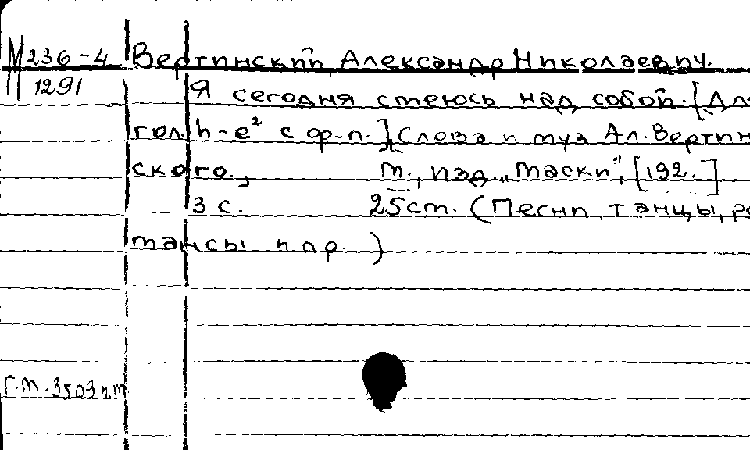 М 236-4 Вертинский, Александр Николаевич.
1291 Я сегодня смеюсь над собой. [Для
гол. h-e² с ф-п.] Слова и муз. Ал. Вертин-
ского,
М., изд. "Маски", [192. ]
3 с. 25 cm. (Песни, танцы, ро-
мансы и пр. )
Г.М. 3503